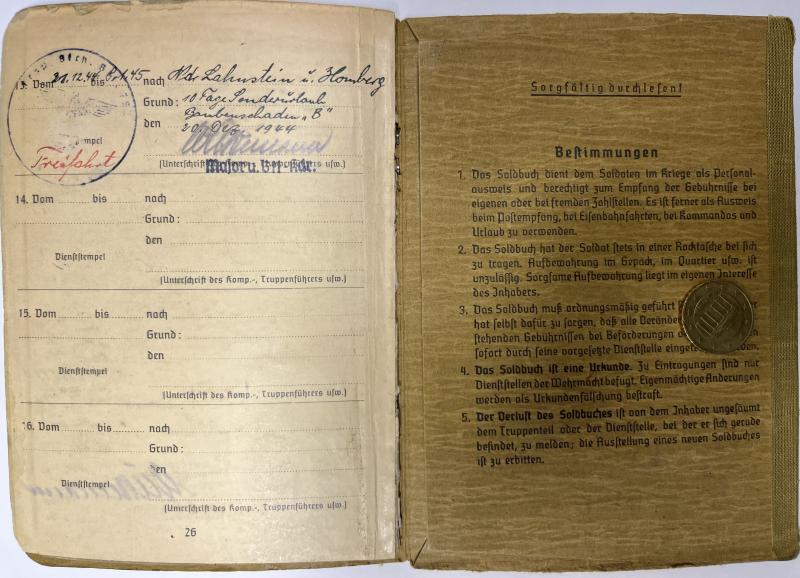 13. Vom 21.12.44 bis 8.1.45 nach Ndr Lahnstein u. Homberg
Grund: 10 Tage Sonderurlaub
Bombenschaden „B"
den 20. Dez. 1944
Dienststempel
Freifahrt
(Unterschrift des Komp.-, Truppenführers usw.)
Major u. Btl-Kdr.
14. Vom bis nach
Grund:
den
Dienststempel
(Unterschrift des Komp.-, Truppenführers usw.)
15. Vom bis nach
Grund:
den
Dienststempel
(Unterschrift des Komp.-, Truppenführers usw.)
16. Vom bis nach
Grund:
den
Dienststempel
(Unterschrift des Komp.-, Truppenführers usw.)
26
Sorgfältig durchlesen!
Bestimmungen
1. Das Soldbuch dient dem Soldaten im Kriege als Personal-
ausweis und berechtigt zum Empfang der Gebührnisse bei
eigenen oder bei fremden Zahlstellen. Es ist ferner als Ausweis
beim Postempfang, bei Eisenbahnfahrten, bei Kommandos und
Urlaub zu verwenden.
2. Das Soldbuch hat der Soldat stets in einer Rocktasche bei sich
zu tragen. Aufbewahrung im Gepäck, im Quartier usw. ist
unzulässig. Sorgsame Aufbewahrung liegt im eigenen Interesse
des Inhabers.
3. Das Soldbuch muß ordnungsmäßig geführt
hat selbst dafür zu sorgen, daß alle
stehenden Gebührnissen bei Beförderungen
sofort durch seine vorgesetzte Dienststelle
4. Das Soldbuch ist eine Urkunde. Zu Eintragungen sind nur
Dienststellen der Wehrmacht befugt. Eigenmächtige Änderungen
werden als Urkundenfälschung bestraft.
5. Der Verlust des Soldbuches ist von dem Inhaber ungesäumt
dem Truppenteil oder der Dienststelle, bei der er sich gerade
befindet, zu melden; die Ausstellung eines neuen Soldbuches
ist zu erbitten.